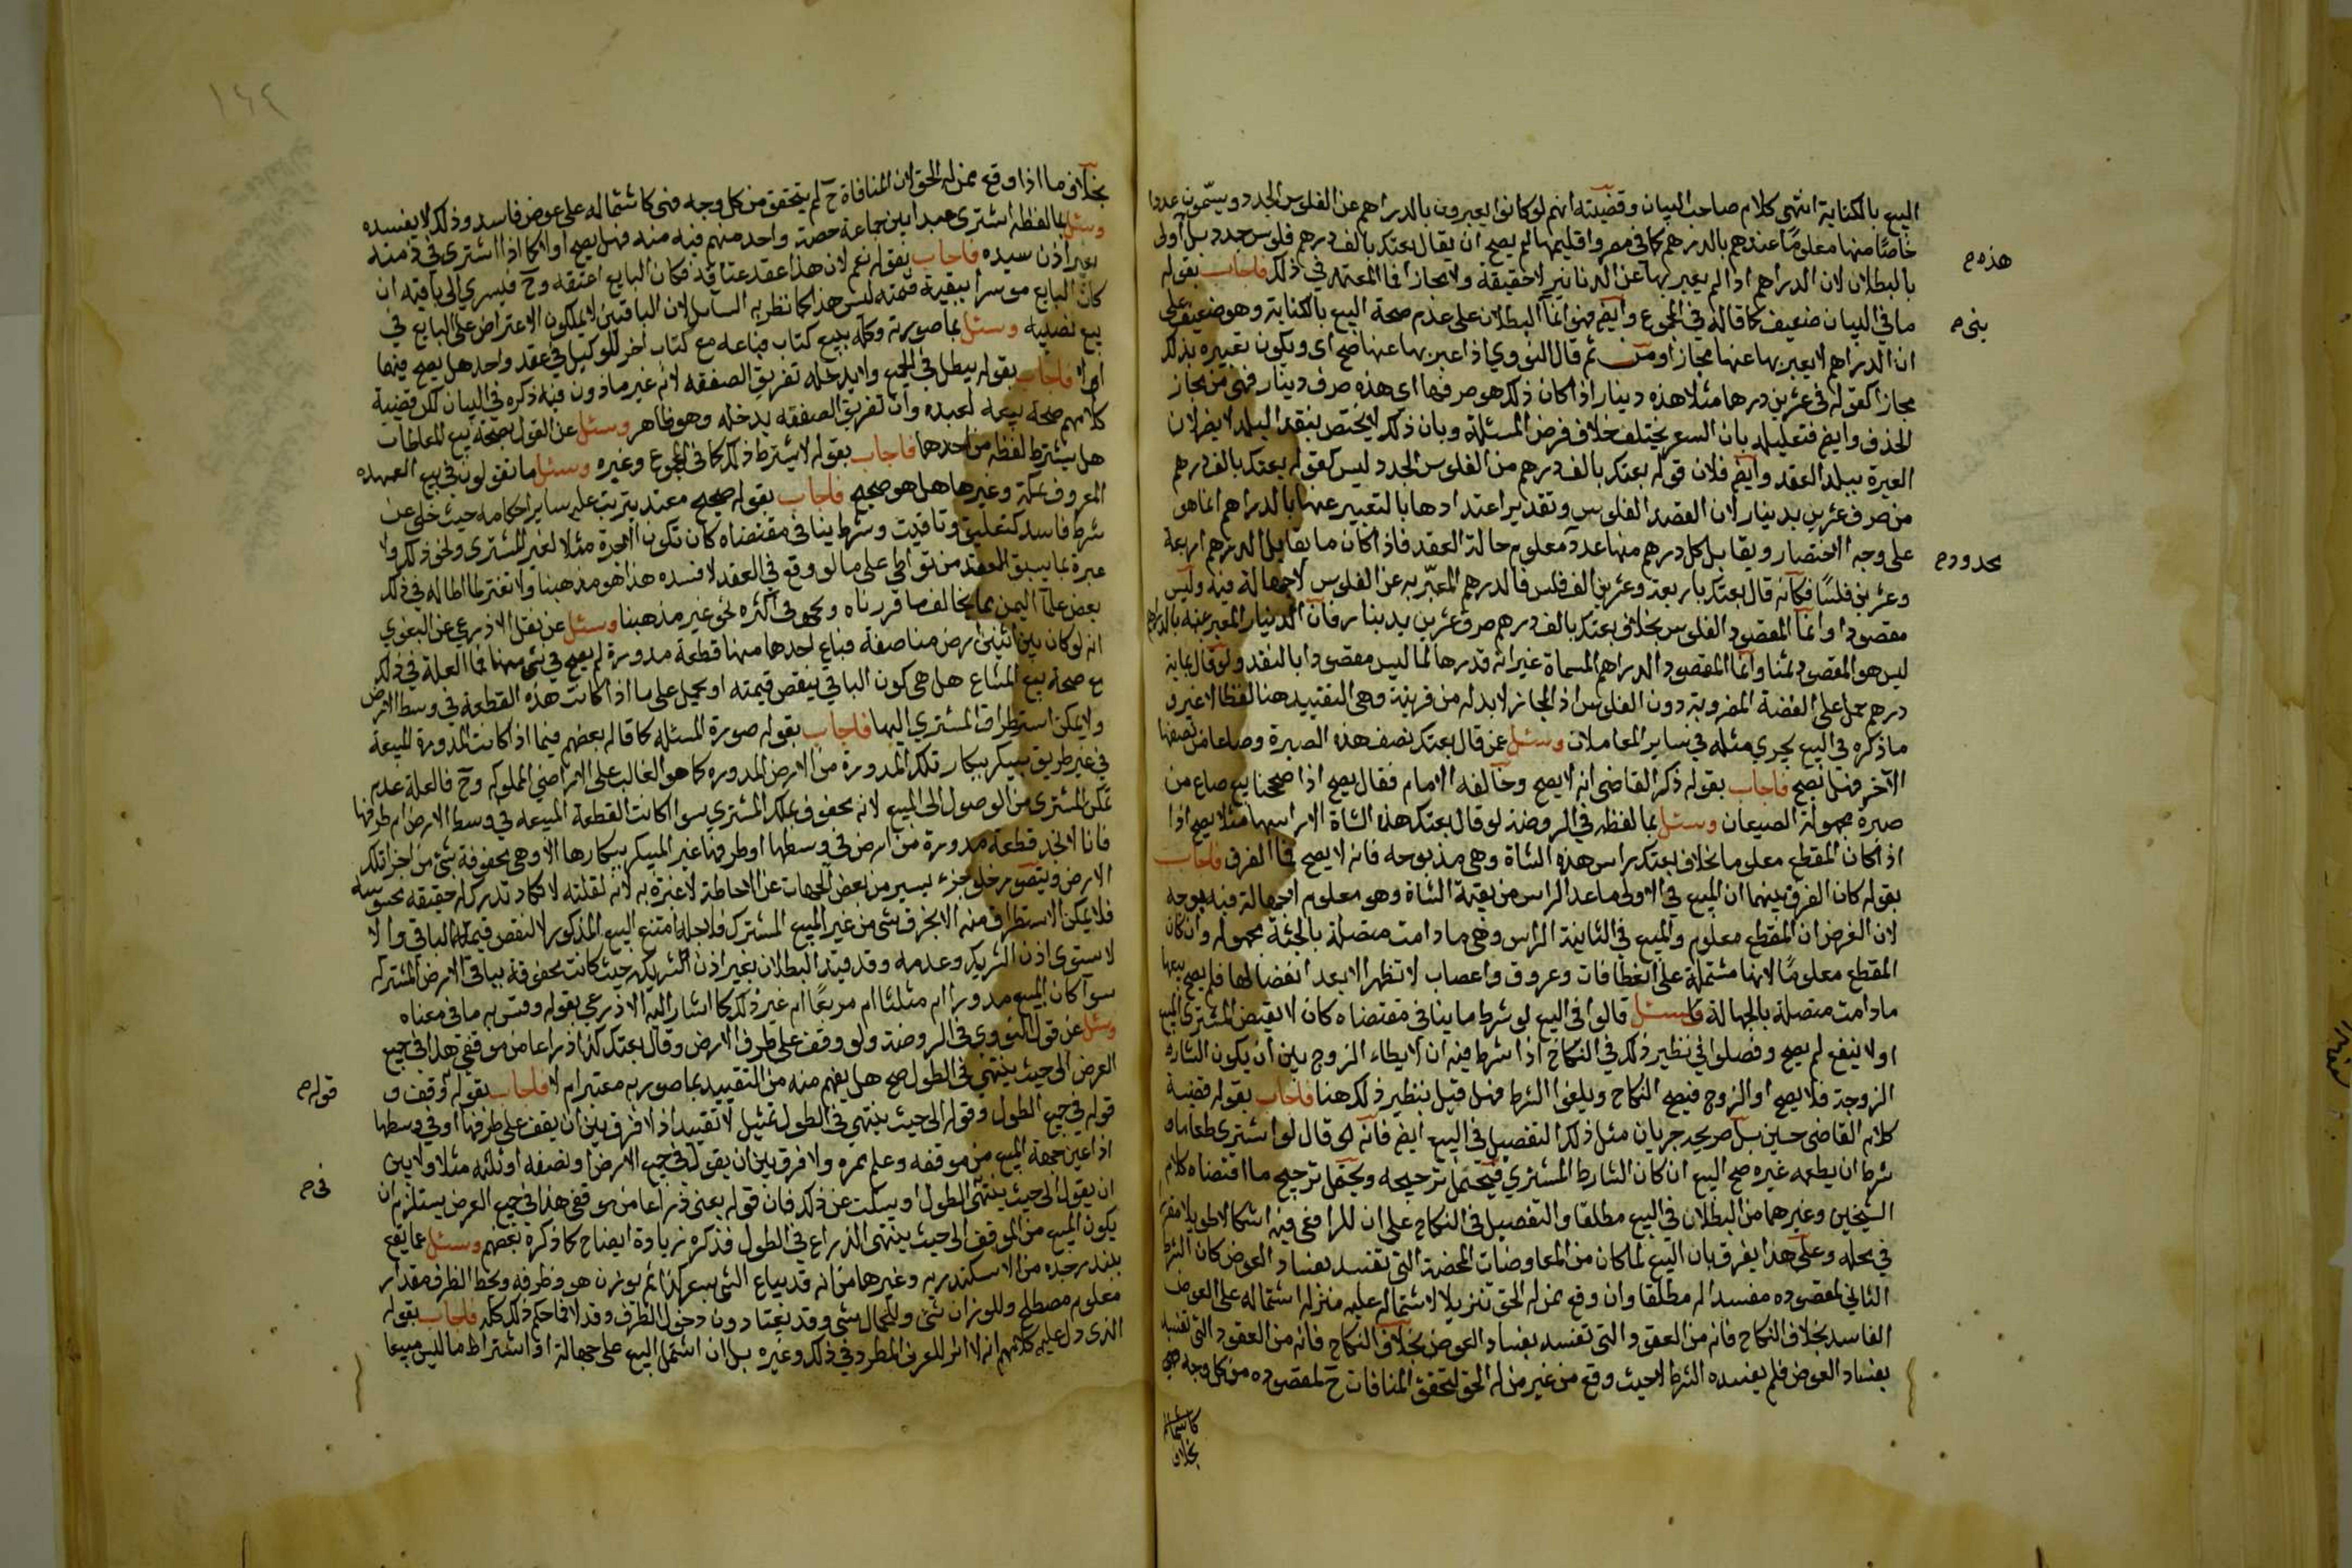 البيع بالكناية انتهى كلام صاحب البيان وقضيته انهم لو كانوا يعبرون بالدراهم عن الفلوس الجدد ويسمون عددا
خاصا منها معلوما عندهم بالدرهم كما في مصر واقليمها لم يصح ان يقال بعتك بالف درهم فلوس جدد بل أولى
بالبطلان لان الدراهم اذا لم يعبر بها عن الدنانير لا حقيقة ولا مجازا فما المعتمد في ذلك فاجاب بقوله
ما في البيان ضعيف كما قاله في المجموع وايضا فهو انما البطلان على عدم صحة البيع بالكناية وهو ضعيف على
ان الدراهم لا يعبر بها عنها مجازا ومن ثم قال النووي اذا عبر بها عنها صح اى ويكون تعبيره بذلك
مجازا كقوله في عشرين درهما مثلا هذه دينار اذا كان ذلك هو صرفها اى هذه صرف دينار فهى من مجاز
الحذف وايضا فتعليله بان السعر يختلف خلاف فرض المسئلة وبان ذلك لا يختص بنقد البلد لا يضر لان
العبرة ببلد العقد وايضا فلان قوله بعتك بالف درهم من الفلوس الجدد ليس كقوله بعتك بالف درهم
من صرف عشرين بدينار لان القصد الفلوس وتقدير اعتدادها بالتعبير عنها بالدراهم انما هو
على وجه الاختصار ويقابل كل درهم منها عدد معلوم حالة العقد فاذا كان ما يقابل الدرهم اربعة
وعشرين فلسا فكأنه قال بعتك باربعة وعشرين الف فلس فالدرهم المعبر به عن الفلوس لا جهالة فيه وليس
مقصودا وانما المقصود الفلوس بخلاف بعتك بالف درهم صرف عشرين بدينار فان الدينار المعبر عنه بالدراهم
ليس هو المقصود ثمنا وانما المقصود الدراهم المسماة غير انه قدرها لما ليس مقصودا بالنقد ولو قال بماية
درهم حمل على الفضة المضروبة دون الفلوس اذ المجاز لا بد له من قرينة وهى التقييد هنا لفظا لا غير و
ما ذكره في البيع يجري مثله في ساير المعاملات وسئل عمن قال بعتك نصف هذه الصبرة وصاعا من نصفها
الآخر فهل يصح فاجاب بقوله ذكر القاضى انه لا يصح وخالفه الامام فقال يصح اذا صححنا بيع صاع من
صبرة مجهولة الصيعان وسئل بما لفظه في الروضة لو قال بعتك هذه الشاة الا راسها مثلا يصح اذا
اذا كان المقطع معلوما بخلاف بعتك راس هذه الشاة وهى مذبوحه فانه لا يصح فما الفرق فاجاب
بقوله كان الفرق بينهما ان المبيع في الاولى ما عدا الراس من بقية الشاة وهو معلوم لا جهالة فيه بوجه
لان الفرض ان المقطع معلوم والمبيع في الثانية الراس وهى ما دامت متصلة بالجثة مجهوله وان كان
المقطع معلوما لانها مشتملة على انعطافات وعروق واعصاب لا تظهر الا بعد انفصالها فلم يصح بيعها
ما دامت متصلة بالجهالة وسئل قالوا في البيع لو شرط ما ينافي مقتضاه كان لا يقبض المشترى المبيع
او لا ينتفع لم يصح وفصلوا في نظير ذلك في النكاح اذا شرط فيه ان لا يطاء الزوج بين أن يكون الشارط
الزوجة فلا يصح او الزوج فيصح النكاح ويلغوا الشرط فهل قيل بنظير ذلك هنا فاجاب بقوله قضية
كلام القاضى حسين بل صريحه جريان مثل ذلك التفصيل في البيع ايضا فانه قال لو اشترى طعاما و
شرط ان يطعمه غيره صح البيع ان كان الشارط المشتري فيحتمل ترجيحه ويحتمل ترجيح ما اقتضاه كلام
الشيخين وغيرهما من البطلان في البيع مطلقا والتفصيل في النكاح على ان للرافعى فيه اشكالا طويلا مقرر
في محله وعلى هذا يفرق بان البيع لما كان من المعاوضات المحضة التى تفسد بفساد العوض كان الشرط
الثاني لمقصوده مفسدا له مطلقا وان وقع ممن له الحق تنزيلا لاشتماله عليه منزلة اشتماله على العوض
الفاسد بخلاف النكاح فانه من العقود التى تفسد بفساد العوض بخلاف النكاح فانه من العقود التى لا تفسد
بفساد العوض فلم يفسده الشرط الا حيث وقع من غير من له الحق لتحقق المنافات ح لمقصوده من كل وجه
كاشتماله
بخلاف
هذه م
بنى م
محدود م
١٤٢
بخلاف ما اذا وقع ممن له الحق لان المنافاة ح لم يتحقق من كل وجه فهى كاشتماله على عوض فاسد وذلك لا يفسده
وسئل بما لفظه اشترى عبدا بين جماعة حصة واحد منهم فيه منه فهل يصح او لا كما اذا اشترى في ذمته
بغير أذن سيده فاجاب بقوله نعم لان هذا عقد عتاقة فكان البايع اعتقه وح فيسرى الى باقيه ان
كان البايع موسرا ببقية قيمته ليس هذا كما نظر به السائل لان الباقين لا يملكون الاعتراض على البايع في
بيع نصيبه وسئل بما صورته وكله ببيع كتاب فباعه مع كتاب اخر للوكيل في عقد واحد هل يصح فيهما
ام لا فاجاب بقوله يبطل في الجميع ولا يدخله تفريق الصفقه لانه غير ماذون فيه ذكره في البيان لكن قضية
كلامهم صحة بيعه لعبده وان تفريق الصفقه يدخله وهو ظاهر وسئل عن القول بصحة بيع المعاطات
هل يشترط لفظ من احدهما فاجاب بقوله لا يشترط ذلك كما في المجموع وغيره وسئل ما تقولون في بيع العهده
المعروف بمكة وغيرها هل هو صحيح فاجاب بقوله صحيح معتد يترتب عليه ساير احكامه حيث خلى عن
شرط فاسد كتعليق وتاقيت وشرط ينافي مقتضاه كان تكون الاجرة مثلا لغير المشترى ونحو ذلك ولا
عبرة بما يسبق العقد من تواطي على ما لو وقع في العقد لافسده هذا هو مذهبنا ولا تغتر بما اطاله في ذلك
بعض علماء اليمن مما يخالف ما قررناه ونحوه في اكثره نحى غير مذهبنا وسئل عن نقل الاذرعي عن البغوي
انه لو كان بين اثنين ارض مناصفة فباع احدهما منها قطعة مدورة لم يصح في شئ منها فما العلة في ذلك
مع صحة بيع المشاع هل هى كون الباقي ينقص قيمته او يحمل على ما اذا كانت هذه القطعة في وسط الارض
ولا يمكن استطراق المشتري اليها فاجاب بقوله صورة المسئلة كما قاله بعضهم فيما اذا كانت المدورة المبيعة
في غير طريق بيكر ببكار تلك المدورة من الارض المدوره كما هو الغالب على الاراضي المملوكه وح فالعلة عدم
تمكن المشترى من الوصول الى المبيع لانه محفوف بملك المشتري سوا كانت القطعة المبيعه في وسط الارض ام طرفها
فانا لا نجد قطعة مدورة من ارض في وسطها او طرفها غير المبيكر ببكارها الا وهى محفوفة بشئ من اجزا تلك
الارض وبتصور خلو جزء يسير من بعض الجهات عن الاحاطة لا عبرة به لانه لقلته لا تكاد تدرك له حقيقه محسوسة
فلا يمكن الاستطراق منه الا بخرق شئ من غير المبيع المشترك فلاجله امتنع البيع المذكور لا لنقص قيمة الباقي والا
لاستوى اذن الشريك وعدمه وقد قيد البطلان بغير اذن الشريك حيث كانت محفوفة بباقى الارض المشتركه
سوآ كان المبيع مدورا ام مثلثا ام مربعا ام غير ذلك كما اشار اليه الاذرعي بقوله وقس به ما في معناه
وسئل عن قول النووي في الروضة ولو وقف على طرف الارض وقال بعتك كذا ذراعا من موقفي هذا في جميع
العرض الى حيث ينتهي في الطول صح هل يفهم منه من التقييد بما صوربه معتبر ام لا فاجاب بقوله وقف و
قوله في جميع الطول وقوله الى حيث ينتهي في الطول تمثيل لا تقييد اذ لا فرق بين ان يقف على طرفها او في وسطها
اذا عين جهة المبيع من موقفه وعلم ممره ولا فرق بين ان يقول في جميع الارض او نصفه او ثلثه مثلا ولا بين
ان يقول الى حيث ينتهى الطول او يسكت عن ذلك فان قوله بعنى ذراعا من موقفى هذا في جميع العرض يستلزم ان
يكون المبيع من الموقف الى حيث ينتهى الذراع في الطول فذكره زيادة ايضاح كما ذكره بعضهم وسئل عما يقع
ببندر جده من الاسكندريه وغيرها من انه قد يباع الشئ بسعر كذا ثم يوزن هو وظرفه ويحط الظرف مقدار
معلوم مصطلح وللوزان شئ وللحمال شئ وقد يعتاد دون دخول الظرف وقد لا فما حكم ذلك كله فاجاب بقوله
الذى دل عليه كلامهم انه لا اثر للعرف المطرد في ذلك وغيره بل ان اشتمل البيع على جهالة او اشتراط ما ليس مبيعا
قوله م
في م